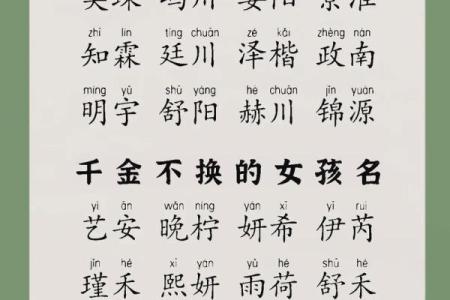 zhī lín tíng chuān zé kǎi zhèng nán
知霖 廷川 泽楷 政南
míng yǔ shū yáng hè chuān jǐn yuán
明宇 舒阳 赫川 锦源
千金不换的女孩名
yì ān wǎn níng yán xī yī ruì
艺安 晚柠 妍希 伊芮
jǐn hé xī yán yǔ hé shū hé
瑾禾 熙妍 雨荷 舒禾